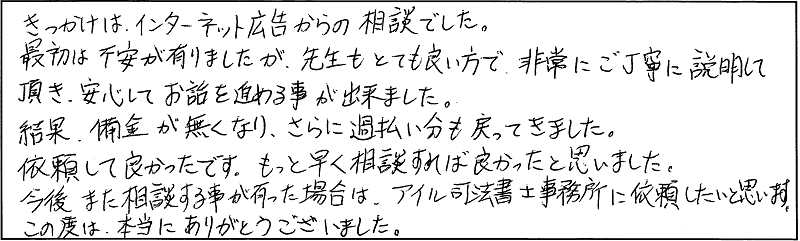 きっかけは、インターネット広告からの相談でした。
最初は不安が有りましたが、先生もとても良い方で、非常にご丁寧に説明して
頂き、安心してお話を進める事が出来ました。
結果、備金が無くなり、さらに過払い分も戻ってきました。
依頼して良かったです。もっと早く相談すれば良かったと思いました。
今後、また相談する事が有った場合は、アイル司法書士事務所に依頼したいと思います。
この度は、本当にありがとうございました。